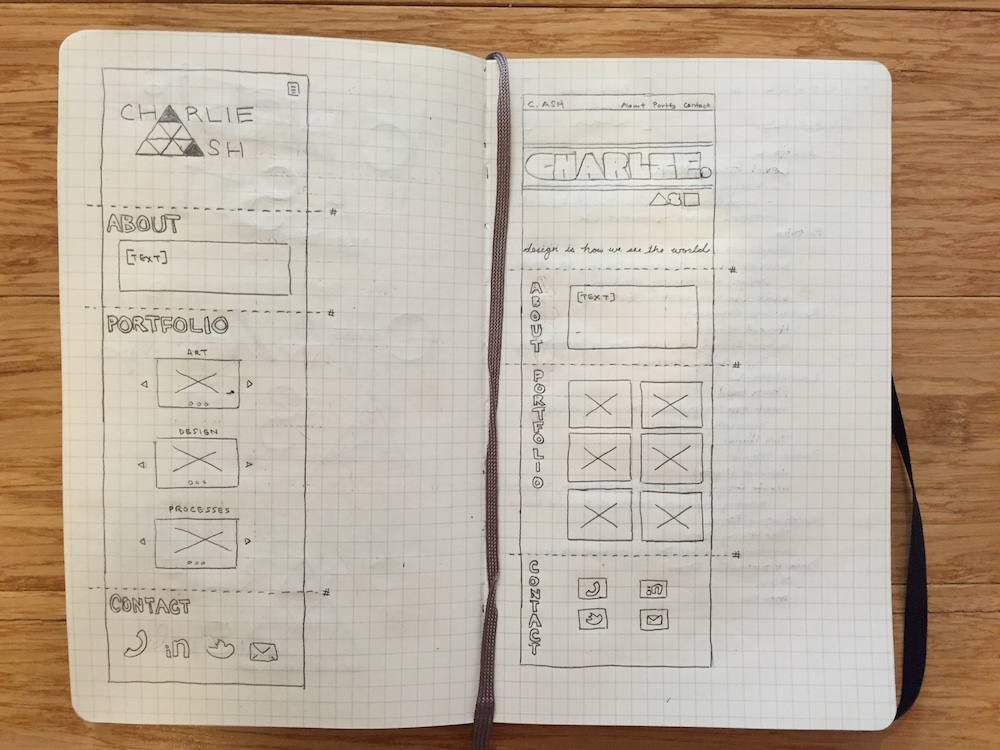 CHARLIE
ASH
#
ABOUT
[TEXT]
#
PORTFOLIO
ART
DESIGN
PROCESSES
#
CONTACT
in
C. ASH About Portfo Contact
CHARLIE.
design is how we see the world
#
ABOUT
[TEXT]
#
PORTFOLIO
#
CONTACT
in